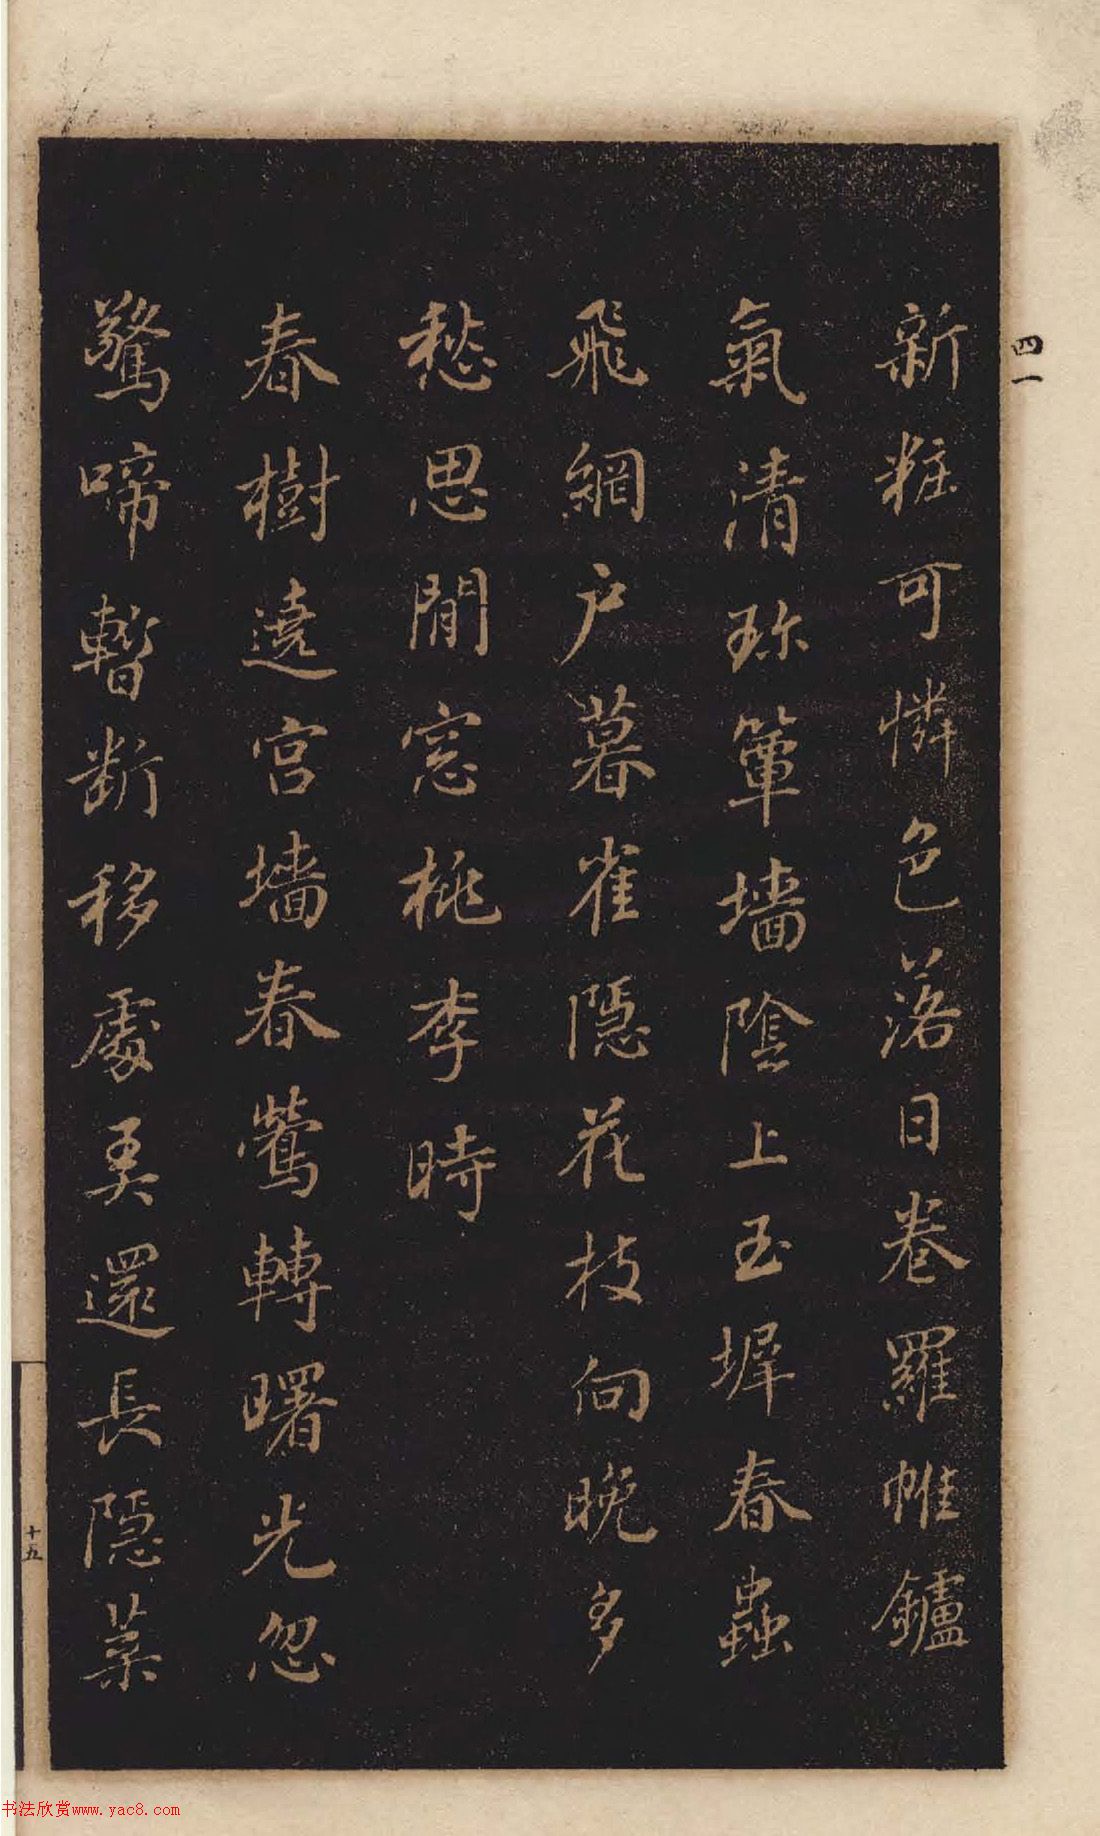 四一
新粧可憐色落日卷羅帷鑪
氣清珎簟墻陰上玉墀春蟲
飛網户暮雀隱花枝向晚多
愁思閒窓桃李時
春樹遶宫墻春鶯轉曙光忽
驚啼暫断移處弄還長隱葉
十五
书法欣赏www.yac8.com